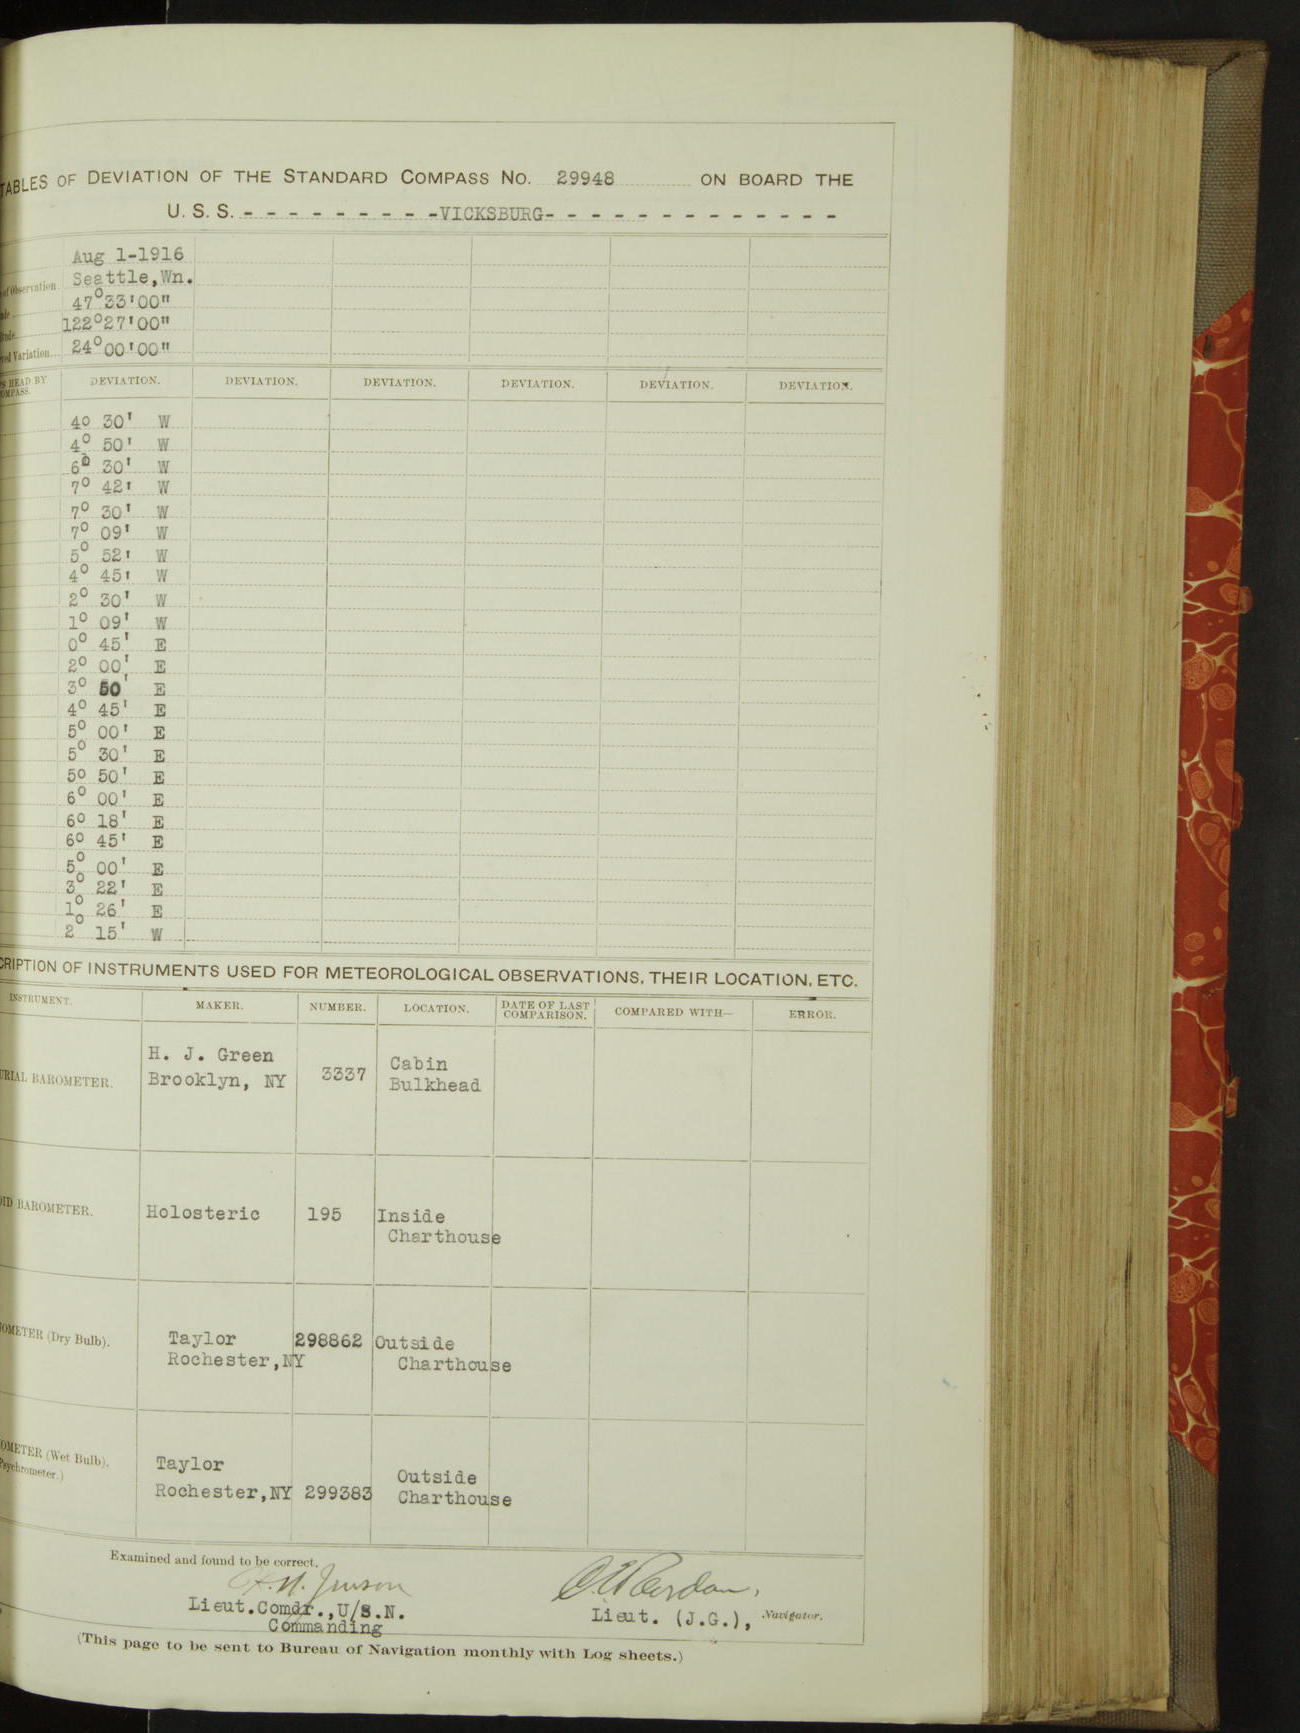 TABLES OF DEVIATION OF THE STANDARD COMPASS NO. 29948 ON BOARD THE
U. S. S. - - - - - - - - -VICKSBURG- - - - - - - - - - - - -
Aug 1-1916
of Observation Seattle,Wn.
47°33'00"
122°27'00"
Variation 24°00'00"
HEAD BY DEVIATION. DEVIATION. DEVIATION. DEVIATION. DEVIATION. DEVIATION.
4° 30' W
4° 50' W
6° 30' W
7° 42' W
7° 30' W
7° 09' W
5° 52' W
4° 45' W
2° 30' W
1° 09' W
0° 45' E
2° 00' E
3° 50' E
4° 45' E
5° 00' E
5° 30' E
5° 50' E
6° 00' E
6° 18' E
6° 45' E
5° 00' E
3° 22' E
1° 26' E
2° 15' W
CRIPTION OF INSTRUMENTS USED FOR METEOROLOGICAL OBSERVATIONS, THEIR LOCATION, ETC.
INSTRUMENT. MAKER. NUMBER. LOCATION. DATE OF LAST COMPARISON. COMPARED WITH— ERROR.
H. J. Green Cabin
URIAL BAROMETER. Brooklyn, NY 3337 Bulkhead
OID BAROMETER. Holosteric 195 Inside
Charthouse
OMETER (Dry Bulb). Taylor 298862 Outside
Rochester,NY Charthouse
OMETER (Wet Bulb). Taylor Outside
Psychrometer.) Rochester,NY 299383 Charthouse
Examined and found to be correct.
Lieut.Comdr.,U/S.N. Lieut. (J.G.), Navigator.
Commanding
(This page to be sent to Bureau of Navigation monthly with Log sheets.)